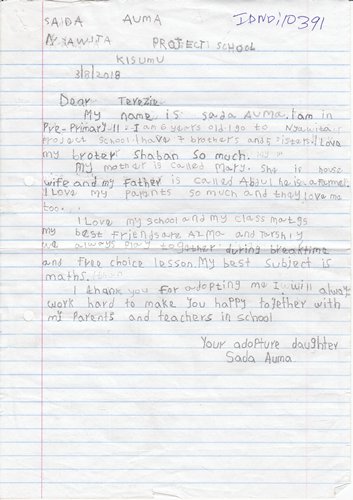 SAIDA AUMA IDNDi/0391
NYAWITA PROJECT: SCHOOL
KISUMU
3/8/2018
Dear Terezie
My name is sada AUMA. I am in
Pre-Primary-11. I an 6 years old. I go to Nyawita
project school. I have 7 brothers and 5 isters. I Love
my broter Shaban so much.
My mother is called Mary. She is house
wife and my Father is called Abdul he is a Farmer.
I Love my parents so much and they love me
too.
I Love my school and my class mates
my best Friends are and
we always play together during breaktime
and free choice lesson. My best subject is
maths.
I thank you for adopting me I will alway
work hard to make you happy together with
my Parents and teachers in school
Your adopture daughter
Sada Auma